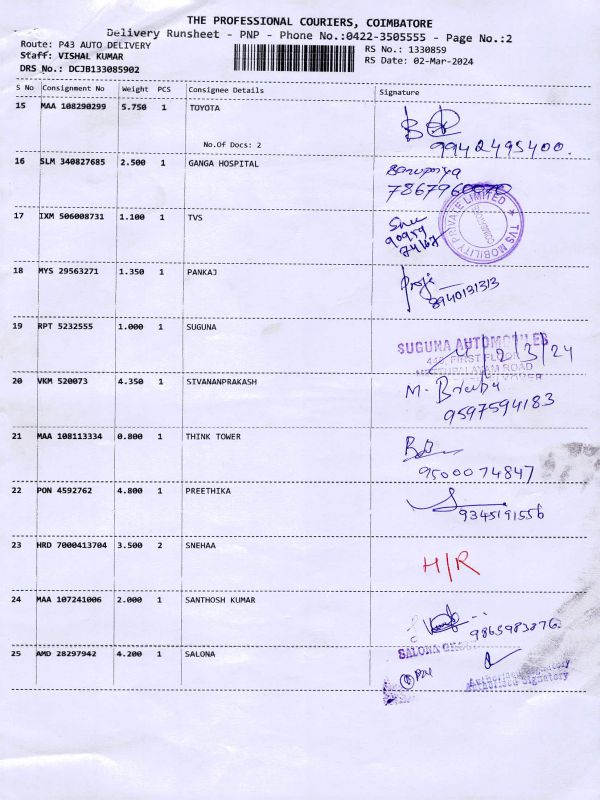 THE PROFESSIONAL COURIERS, COIMBATORE
Delivery Runsheet - PNP - Phone No.:0422-3505555 - Page No.:2
Route: P43 AUTO DELIVERY RS No.: 1330859
Staff: VISHAL KUMAR RS Date: 02-Mar-2024
DRS No.: DCJB133085902
S No Consignment No Weight PCS Consignee Details Signature
15 MAA 108290299 5.750 1 TOYOTA
No.Of Docs: 2 9942495400.
16 SLM 340827685 2.500 1 GANGA HOSPITAL
7867960070
17 IXM 506008731 1.100 1 TVS
90959
74167
TVS MOBILITY PRIVATE LIMITED
18 MYS 29563271 1.350 1 PANKAJ
8940131313
19 RPT 5232555 1.000 1 SUGUNA
SUGUNA AUTOMOBILES
FIRST FLOOR 2/3/24
METTUPALAYAM ROAD
20 VKM 520073 4.350 1 SIVANANPRAKASH
9597594183
21 MAA 108113334 0.800 1 THINK TOWER
9500074847
22 PON 4592762 4.800 1 PREETHIKA
9345191556
23 HRD 7000413704 3.500 2 SNEHAA
H/R
24 MAA 107241006 2.000 1 SANTHOSH KUMAR
25 AMD 28297942 4.200 1 SALONA
SALONA
Authorised Signatory